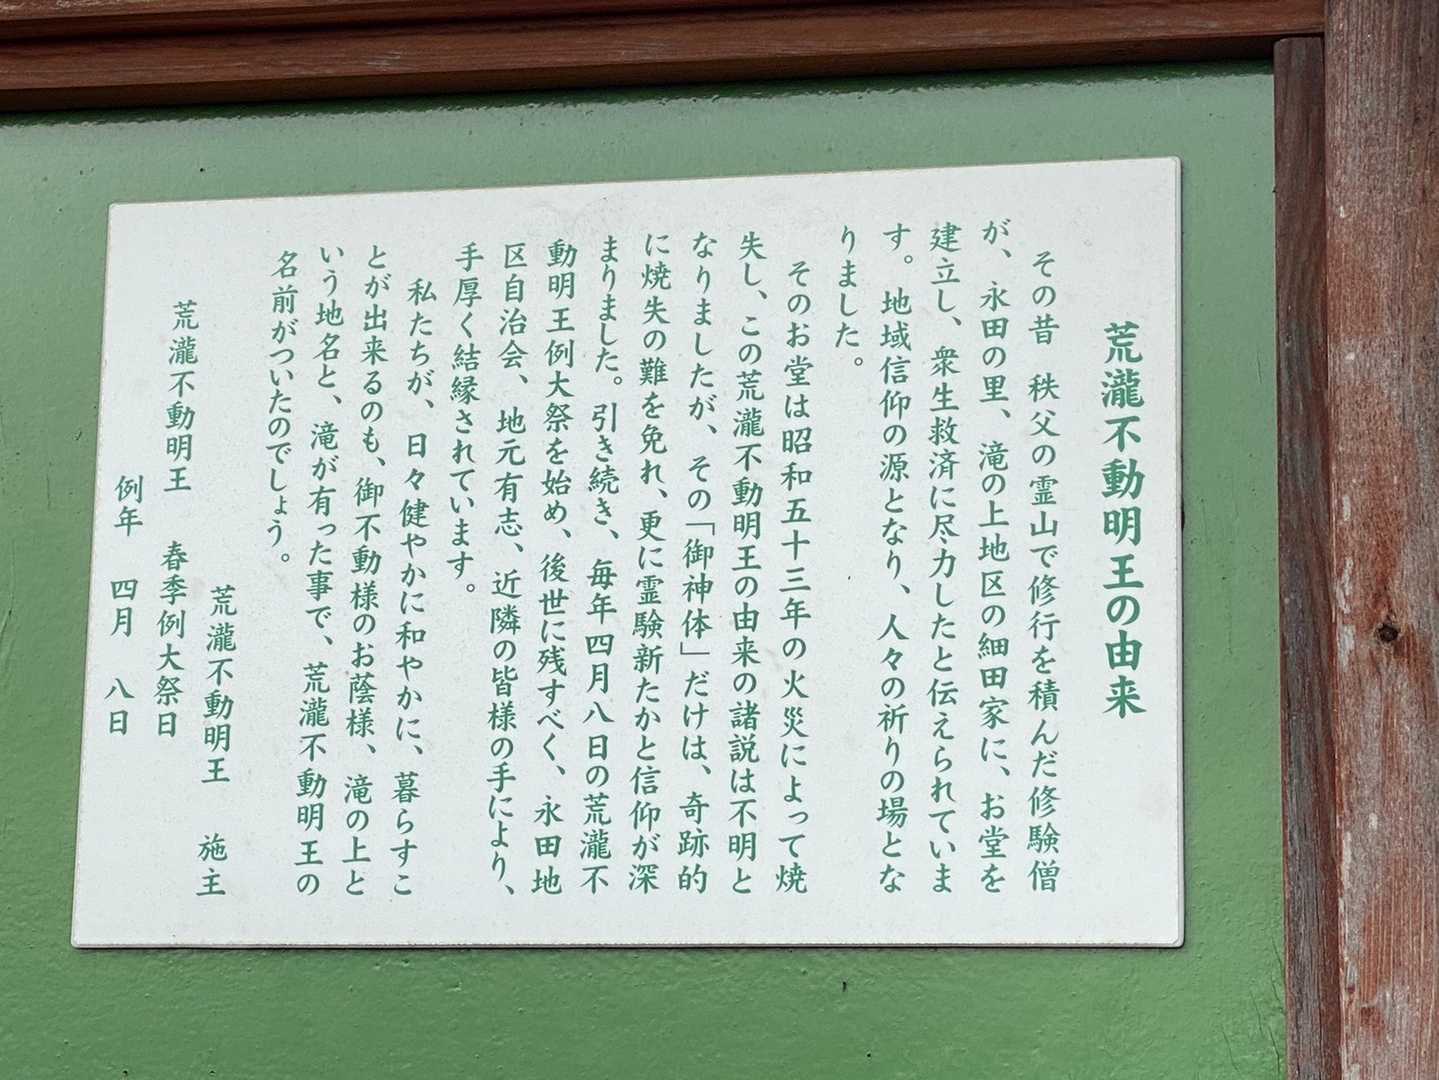 荒瀧不動明王の由来
その昔　秩父の霊山で修行を積んだ修験僧
が、永田の里、滝の上地区の細田家に、お堂を
建立し、衆生救済に尽力したと伝えられていま
す。地域信仰の源となり、人々の祈りの場とな
りました。
そのお堂は昭和五十三年の火災によって焼
失し、この荒瀧不動明王の由来の諸説は不明と
なりましたが、その「御神体」だけは、奇跡的
に焼失の難を免れ、更に霊験新たかと信仰が深
まりました。引き続き、毎年四月八日の荒瀧不
動明王例大祭を始め、後世に残すべく、永田地
区自治会、地元有志、近隣の皆様の手により、
手厚く結縁されています。
私たちが、日々健やかに和やかに、暮らすこ
とが出来るのも、御不動様のお蔭様、滝の上と
いう地名と、滝が有った事で、荒瀧不動明王の
名前がついたのでしょう。
荒瀧不動明王　施主
荒瀧不動明王　春季例大祭日
例年　四月　八日